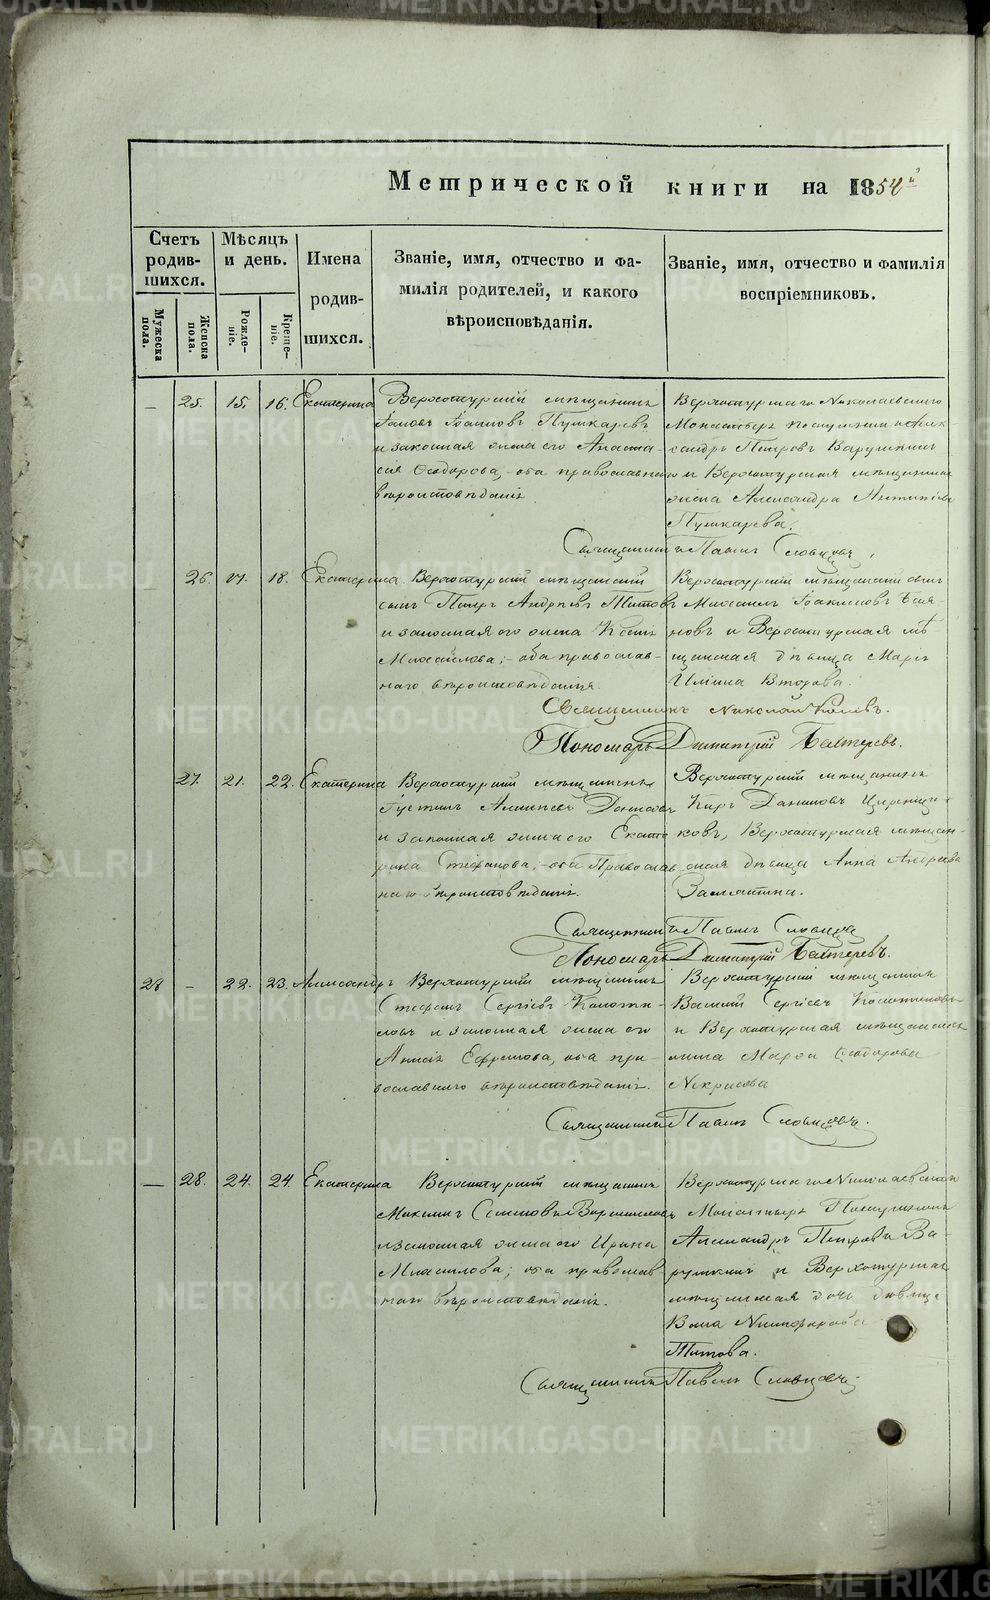 METRIKI.GASO-URAL.RU
Метрической книги на 1854й
Счетъ родив-
шихся.
Мѣсяцъ
и день.
Имена
родив-
шихся.
Званіе, имя, отчество и фа-
милія родителей, и какого
вѣроисповѣданія.
Званіе, имя, отчество и фамилія
воспріемниковъ.
Мужеска
пола.
Женска
пола.
Рожде-
ніе.
Креще-
ніе.
— 25. 15. 16. Екатерина
Верхотурскій мѣщанинъ
Іоанновъ Пушкаревъ
и законная жена его Анаста-
сія Ѳедорова, оба православнаго
вѣроисповѣданія.
Верхотурскаго Николаевскаго
Монастыря послушникъ Алек-
сандръ Петровъ Варушкинъ
и Верхотурская мѣщанская
жена Александра
Пушкарева.
Священникъ Павелъ Словцовъ.
26. 17. 18. Екатерина
Верхотурскій мѣщанскій
сынъ Петръ Андреевъ Титовъ
и законная его жена
Михайлова; оба православ-
наго вѣроисповѣданія.
Верхотурскій мѣщанскій сынъ
Михаилъ
новъ и Верхотурская мѣ-
щанская дѣвица Марія
Ильина Второва.
Священникъ Николай
Пономарь Димитрій
27. 21. 22. Екатерина
Верхотурскій мѣщанинъ
и законная жена его Екате-
рина Стефанова; оба Православ-
наго вѣроисповѣданія.
Верхотурскій мѣщанинъ
Киръ Даниловъ
ковъ, Верхотурская мѣщан-
ская дѣвица Анна Андреева
Замятина.
Священникъ Павелъ Словцовъ
Пономарь Димитрій
28 — 22. 23. Александръ
Верхотурскій мѣщанинъ
Стефанъ Сергіевъ
ловъ и законная жена его
Ефремова, оба пра-
вославнаго вѣроисповѣданія.
Верхотурскій мѣщанинъ
Василій Сергіевъ
и Верхотурская мѣщанская
жена Марѳа Ѳедорова
Некрасова
Священникъ Павелъ Словцовъ.
— 28. 24. 24. Екатерина
Верхотурскій мѣщанинъ
Максимъ Семеновъ
и законная жена его Ирина
Михайлова; оба православ-
наго вѣроисповѣданія.
Верхотурскаго Николаевскаго
Монастыря Послушникъ
Александръ Петровъ Ва-
рушкинъ и Верхотурская
мѣщанская дочь дѣвица
Никифорова
Титова.
Священникъ Павелъ Словцовъ.